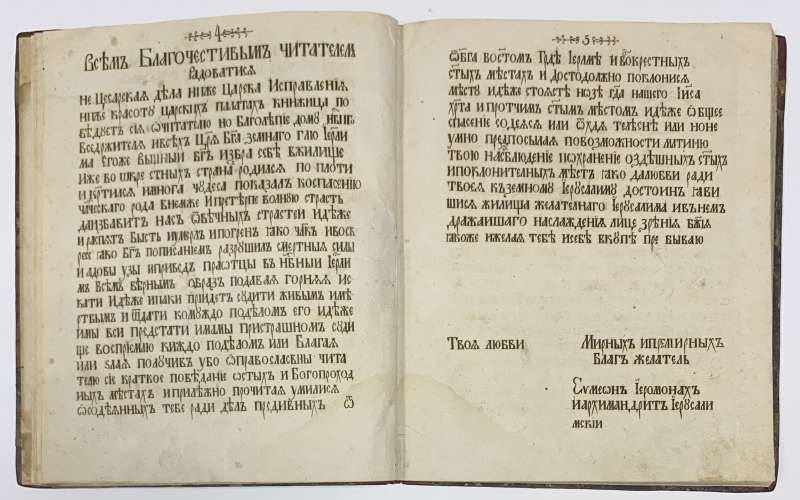 4
Всѣмъ Благочестивымъ читателемъ
радоватися
не Цесарская дѣла ниже Царска Исправленїя
ниже красоту царскихъ палатахъ книжица по
вѣдуетъ сїя ѡчитателю но Баголѣпїе дому
Вседржителя ивсѣхъ Цр҃я Бг҃а земнаго глю Їерли
ма Егоже вышнїи бг҃ъ избра себѣ вжилище
иже во ѡкре стныхъ страна родился по плоти
и кр҃тился имнога чудеса показалъ коспасенїю
чл҃ческаго рода внемже ипретѣрпе волную страсть
даизбавитъ насъ ѿвѣчныхъ страстеи идѣже
и распятъ бысть иумерлъ ипогренъ ꙗко члк҃ъ ивоск
ресе ꙗко бг҃ъ пописанїемъ разрушилъ смертныя силы
и адовы узы иприводъ праѻтцы въ нб҃ныи Їерли
мъ всѣмъ вѣрнымъ образъ подавая горняя ис
кати Идѣже ипаки прїидетъ судити живымъ имѣ
ртвымъ и ѿдати комуждо подѣломъ его идѣже
имы вси предстати имамы пристрашномъ суди
ще воспрїемлю киждо подѣломъ или Благая
или ѕлая получивъ убо ѡправославны чита
телю сїе краткое повѣданїе ѡстыхъ и Богопроход
ныхъ мѣстахъ иприлѣжно прочитая умилися
ѡсодѣянныхъ тебе ради дѣлъ предивныхъ ѿ
5
ѿбг҃а востомъ Градѣ Їерл҃мѣ и вокрестныхъ
ст҃ыхъ мѣстахъ и Достодолжно поклонися
мѣсту идѣже стоястѣ нозѣ гд҃а нашего Їис҃а
хр҃та и протчимъ ст҃ымъ мѣстомъ идѣже ѡбщее
спасенїе содеяся или ѿхдя телѣснѣ или ноне
умно предпосылая повозможности матиню
твою наснабденїе исохранение оздѣшныхъ ст҃ыхъ
ипоклонителныхъ мѣстъ ꙗко далюбви ради
твоея къземному Їерусалиму достоинъ ꙗви
шися жилища желателнаго Їерусалима ивънемъ
дражаишаго наслажденїя лице зрѣнїя бж҃їя
ꙗкоже ижелая тебѣ исебѣ вкупѣ пре бываю
Твоя любви
Мирныхъ ипремирныхъ
благъ желатель
Сѵмеѡнъ Їеромонахъ
иархимандритъ Їерусали
мскїи